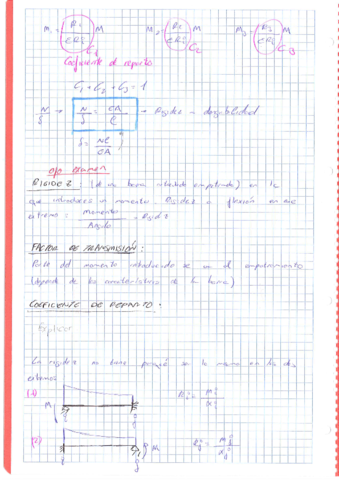 M₁ = (R₁ / ΣRi) M   M₂ = (R₂ / ΣRi) M   M₃ = (R₃ / ΣRi) M
C₁ C₂ C₃
Coeficiente de reparto
C₁ + C₂ + C₃ = 1
N/δ → N/δ = EA/L → Rigidez - ductibilidad
δ = NL/EA
ojo Examen
RIGIDEZ : (de una barra articulada empotrada) en la
que introducimos un momento. Rigidez a flexión en ese
extremo = Momento / Angulo = Rigidez
FACTOR DE TRANSMISIÓN :
Parte del momento introducido se va al empotramiento
(depende de las características de la barra)
COEFICIENTE DE REPARTO :
Explicar
La rigidez no tiene porqué ser la misma en los dos
extremos
(1)
M
(2)
M